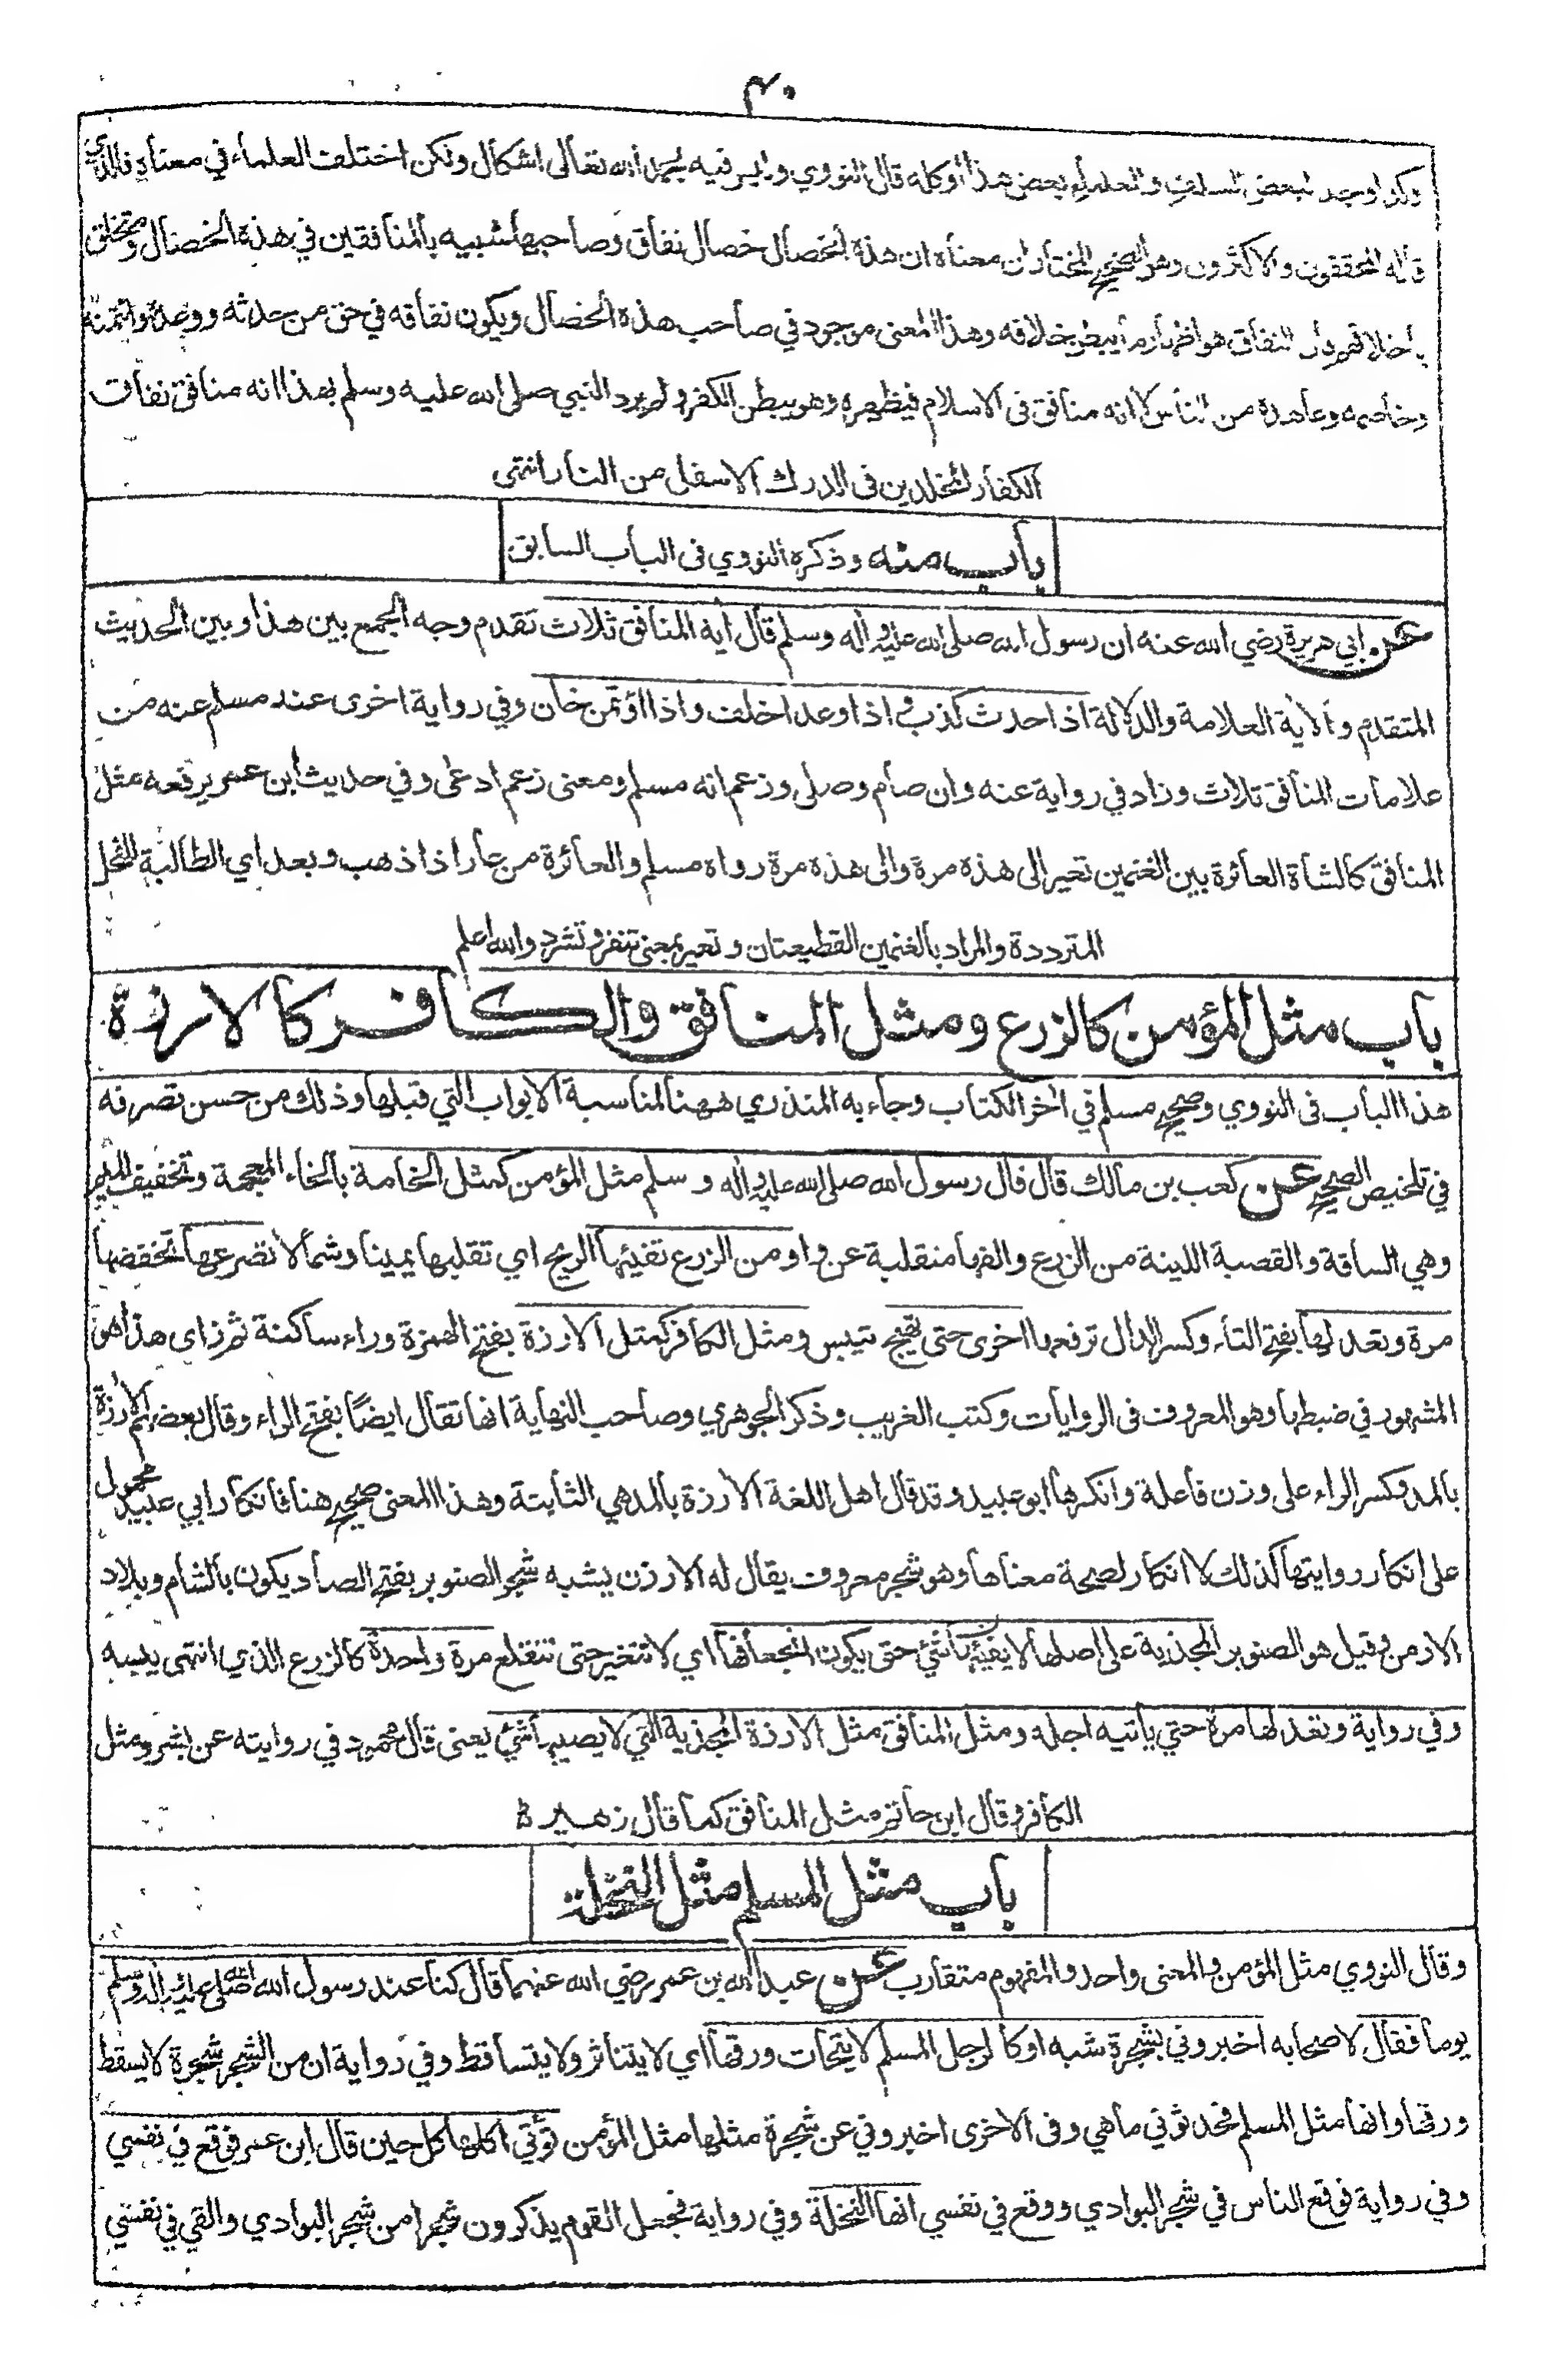 ٤٠
وكذا وجد لبعض السلف والعلماء بعض هذا أو كله قال النووي وليس فيه بحمد الله تعالى اشكال ولكن اختلف العلماء في معناه فالذي
قاله المحققون والاكثرون وهو الصحيح المختار ان معناه ان هذة الخصال خصال نفاق وصاحبها شبيه بالمنافقين في هذة الخصال ومتخلق
باخلاقهم وأن النفاق هو اظهار ما يبطن خلافه وهذا المعنى موجود في صاحب هذه الخصال ويكون نفاقه في حق من حدثه ووعدة وائتمنه
وخاصمه وعاهدة من الناس لا انه منافق فى الاسلام فيظهره وهو يبطن الكفر ولم يرد النبي صلى الله عليه وسلم بهذا انه منافق نفاق
الكفار المخلدين فى الدرك الاسفل من النار انتهى
باب منه وذكره النووي فى الباب السابق
عن ابي هريرة رضي الله عنه ان رسول الله صلى الله عليه وأله وسلم قال أية المنافق ثلاث تقدم وجه الجمع بين هذا وبين الحديث
المتقدم والأية العلامة والدلالة اذا حدث كذب واذا وعد اخلف واذا اؤتمن خان وفي رواية اخرى عند مسلم عنه من
علامات المنافق ثلاث وزاد في رواية عنه وان صام وصلى وزعم انه مسلم ومعنى زعم ادعى وفي حديث ابن عمر يرفعه مثل
المنافق كالشاة العائرة بين الغنمين تعير الى هذه مرة والى هذه مرة رواه مسلم والعائرة من عار اذا ذهب وبعد اي الطالبة للفحل
المترددة والمراد بالغنمين القطيعتان وتعير بمعنى تنفر وتشرد والله اعلم
باب مثل المؤمن كالزرع ومثل المنافق والكافر كالارزة
هذا الباب فى النووي وصحيح مسلم في أخر الكتاب وجاء به المنذري ههنا لمناسبة الابواب التي قبلها وذلك من حسن تصرفه
في تلخيص الصحيح عن كعب بن مالك قال قال رسول الله صلى الله عليه وأله وسلم مثل المؤمن كمثل الخامة بالخاء المعجمة وتخفيف الميم
وهي الساقة والقصبة اللينة من الزرع والفها منقلبة عن واو من الزرع تفيئها الريح اي تقلبها يمينا وشمالا تصرعها تخفضها
مرة وتعدلها بفتح التاء وكسر الدال ترفعها اخرى حتى تهيج تيبس ومثل الكافر كمثل الارزة بفتح الهمزة وراء ساكنة ثم زاى هذا هو
المشهور في ضبطها وهو المعروف فى الروايات وكتب الغريب وذكر الجوهري وصاحب النهاية انها تقال ايضًا بفتح الراء وقال بعضهم الأرزة
بالمد وكسر الراء على وزن فاعلة وانكرها ابو عبيد وقد قال اهل اللغة الأرزة بالمد هي الثابتة وهذا المعنى صحيح هنا فانكار ابي عبيد محمول
على انكار روايتها كذلك لا انكار لصحة معناها وهو شجر معروف يقال له الارزن يشبه شجر الصنوبر بفتح الصاد يكون بالشام وبلاد
الارمن وقيل هو الصنوبر المجذية على اصلها لا يفيئها شئ حتى يكون انجعافها اي لا تتغير حتى تنقلع مرة واحدة كالزرع الذي انتهى يبسه
وفي رواية وتعدلها مرة حتي يأتيه اجله ومثل المنافق مثل الارزة المجذية التي لا يصيبها شئ يعنى قال محمود في روايته عن بشر ومثل
الكافر وقال ابن حاتم مثل المنافق كما قال زهير
باب مثل المسلم مثل النخلة
وقال النووي مثل المؤمن والمعنى واحد والمفهوم متقارب عن عبد الله بن عمر رضي الله عنهما قال كنا عند رسول الله صلى الله عليه وأله وسلم
يوما فقال لاصحابه اخبروني بشجرة شبه او كالرجل المسلم لا يتحات ورقها اي لا يتناثر ولا يتساقط وفي رواية ان من الشجر شجرة لا يسقط
ورقها وانها مثل المسلم فحدثوني ما هي وفى الاخرى اخبروني عن شجرة مثلها مثل المؤمن تؤتي اكلها كل حين قال ابن عمر فوقع في نفسي
وفي رواية فوقع الناس في شجر البوادي ووقع في نفسي انها النخلة وفي رواية فجعل القوم يذكرون شجرا من شجر البوادي والقي في نفسي